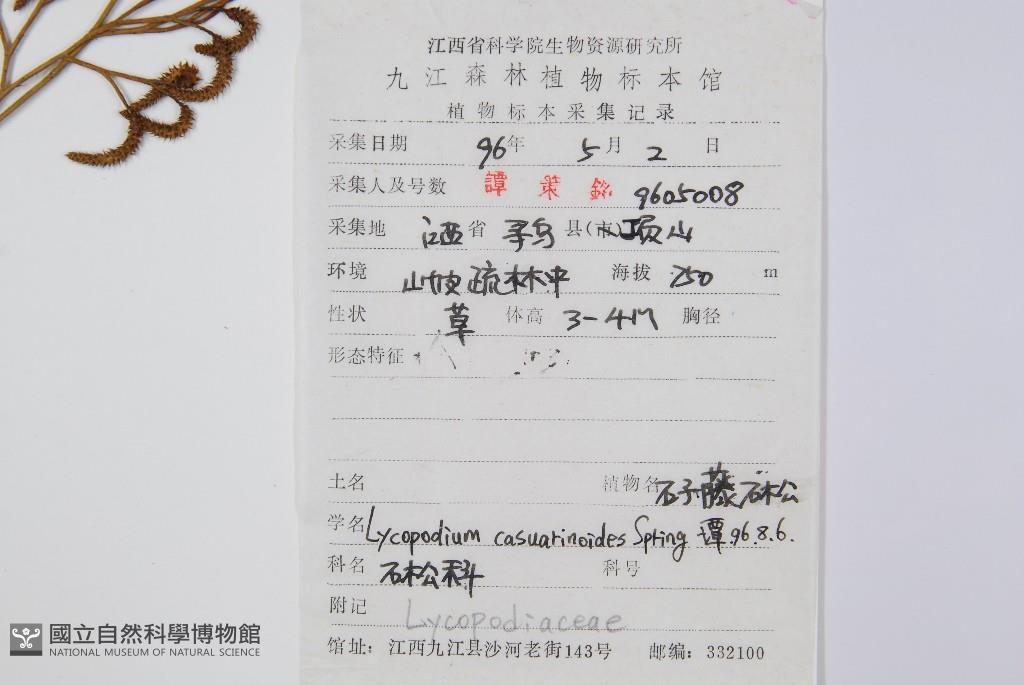 江西省科学院生物资源研究所
九江森林植物标本馆
植物标本采集记录
采集日期 96年 5月 2 日
采集人及号数 譚策銘 9605008
采集地 江西省 寻乌 县(市)项山
环境 山坡疏林中 海拔 750 m
性状 草 体高 3-4m 胸径
形态特征
土名 植物名 石子藤石松
学名 Lycopodium casuarinoides Spring 谭 96.8.6.
科名 石松科 科号
附记 Lycopodiaceae
馆址：江西九江县沙河老街143号 邮编：332100
國立自然科學博物館
NATIONAL MUSEUM OF NATURAL SCIENCE